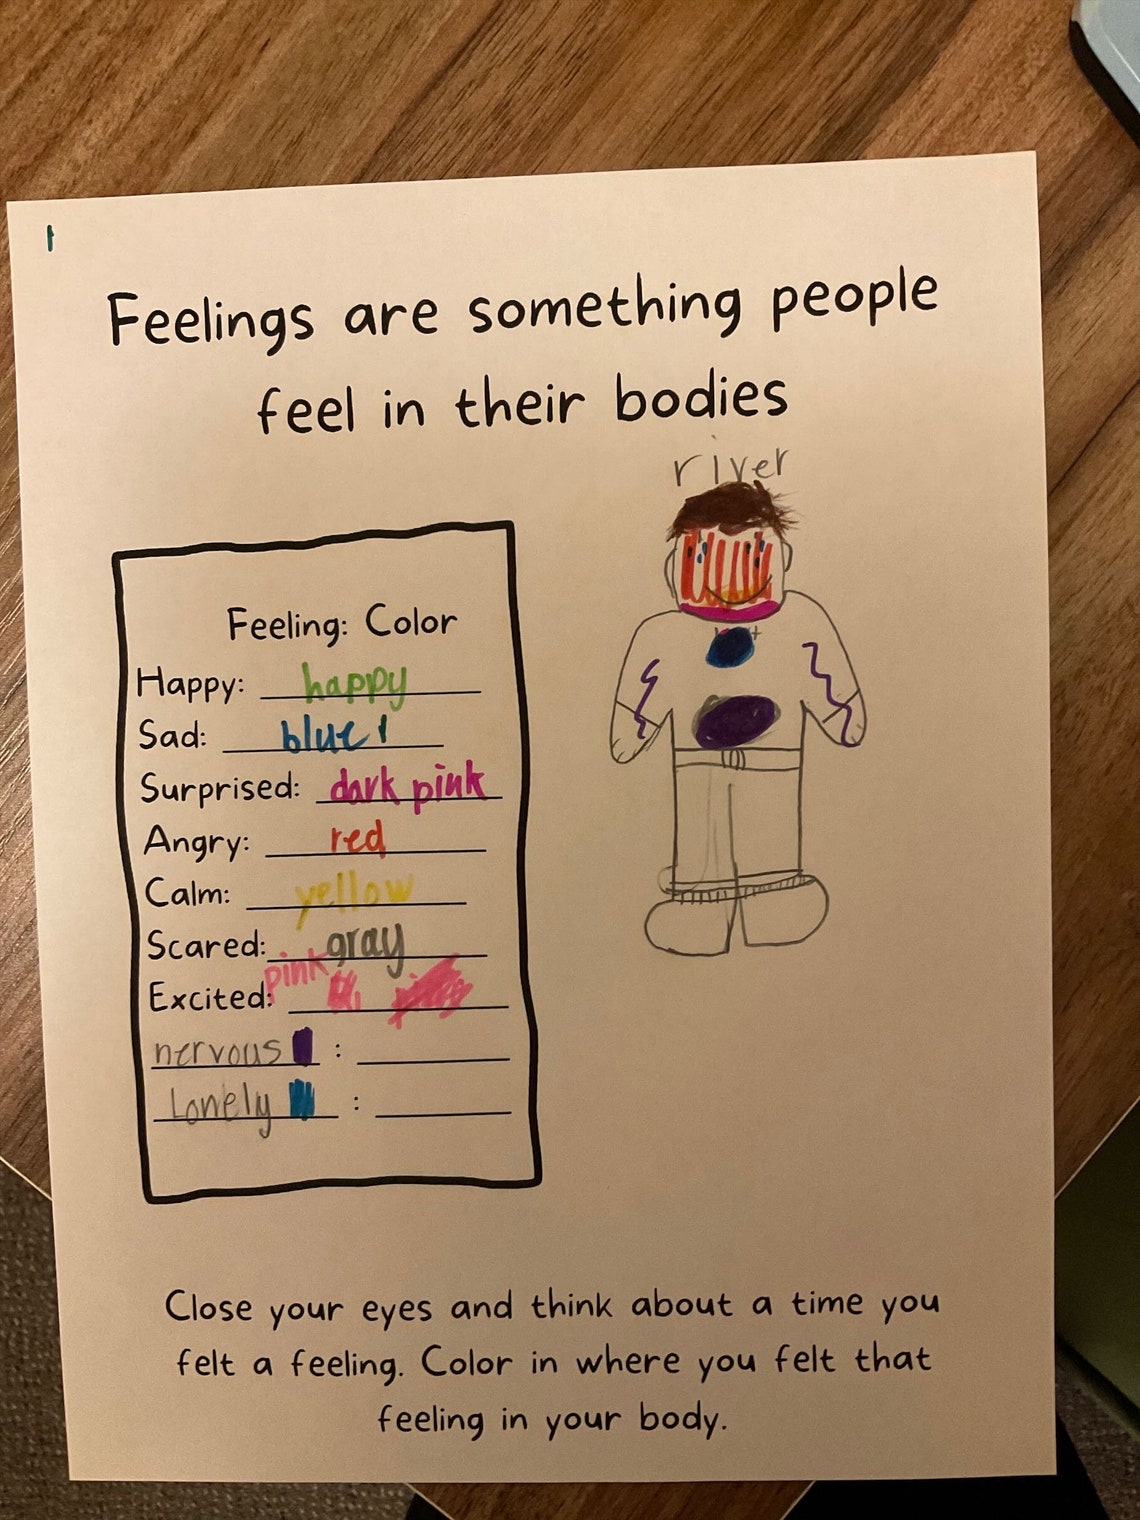 Feelings are something people
feel in their bodies
river
Feeling: Color
Happy: happy
Sad: blue
Surprised: dark pink
Angry: red
Calm: yellow
Scared: gray
Excited: pink
nervous :
Lonely :
Close your eyes and think about a time you
felt a feeling. Color in where you felt that
feeling in your body.